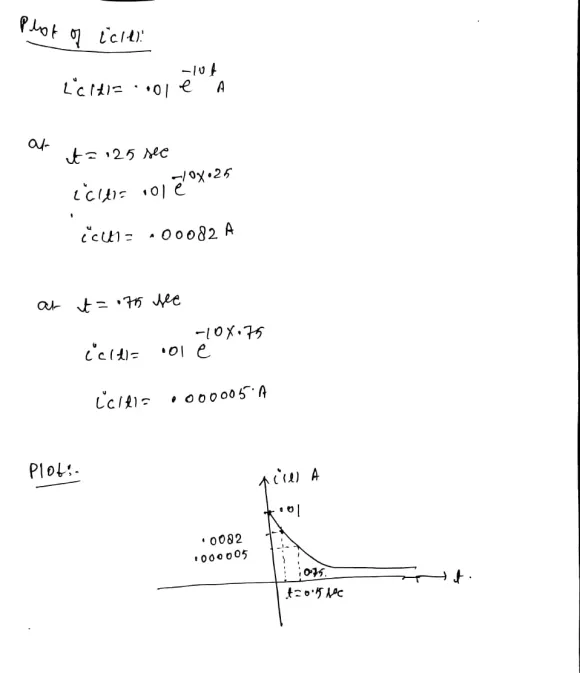 Plot of ic(t):
ic(t) = .01 e^-10t A
at t = .25 sec
ic(t) = .01 e^-10x.25
ic(t) = .00082 A
at t = .75 sec
ic(t) = .01 e^-10x.75
ic(t) = .000005 A
Plot:-
i(t) A
.01
.0082
.000005
0.75
t
t=0.5 sec